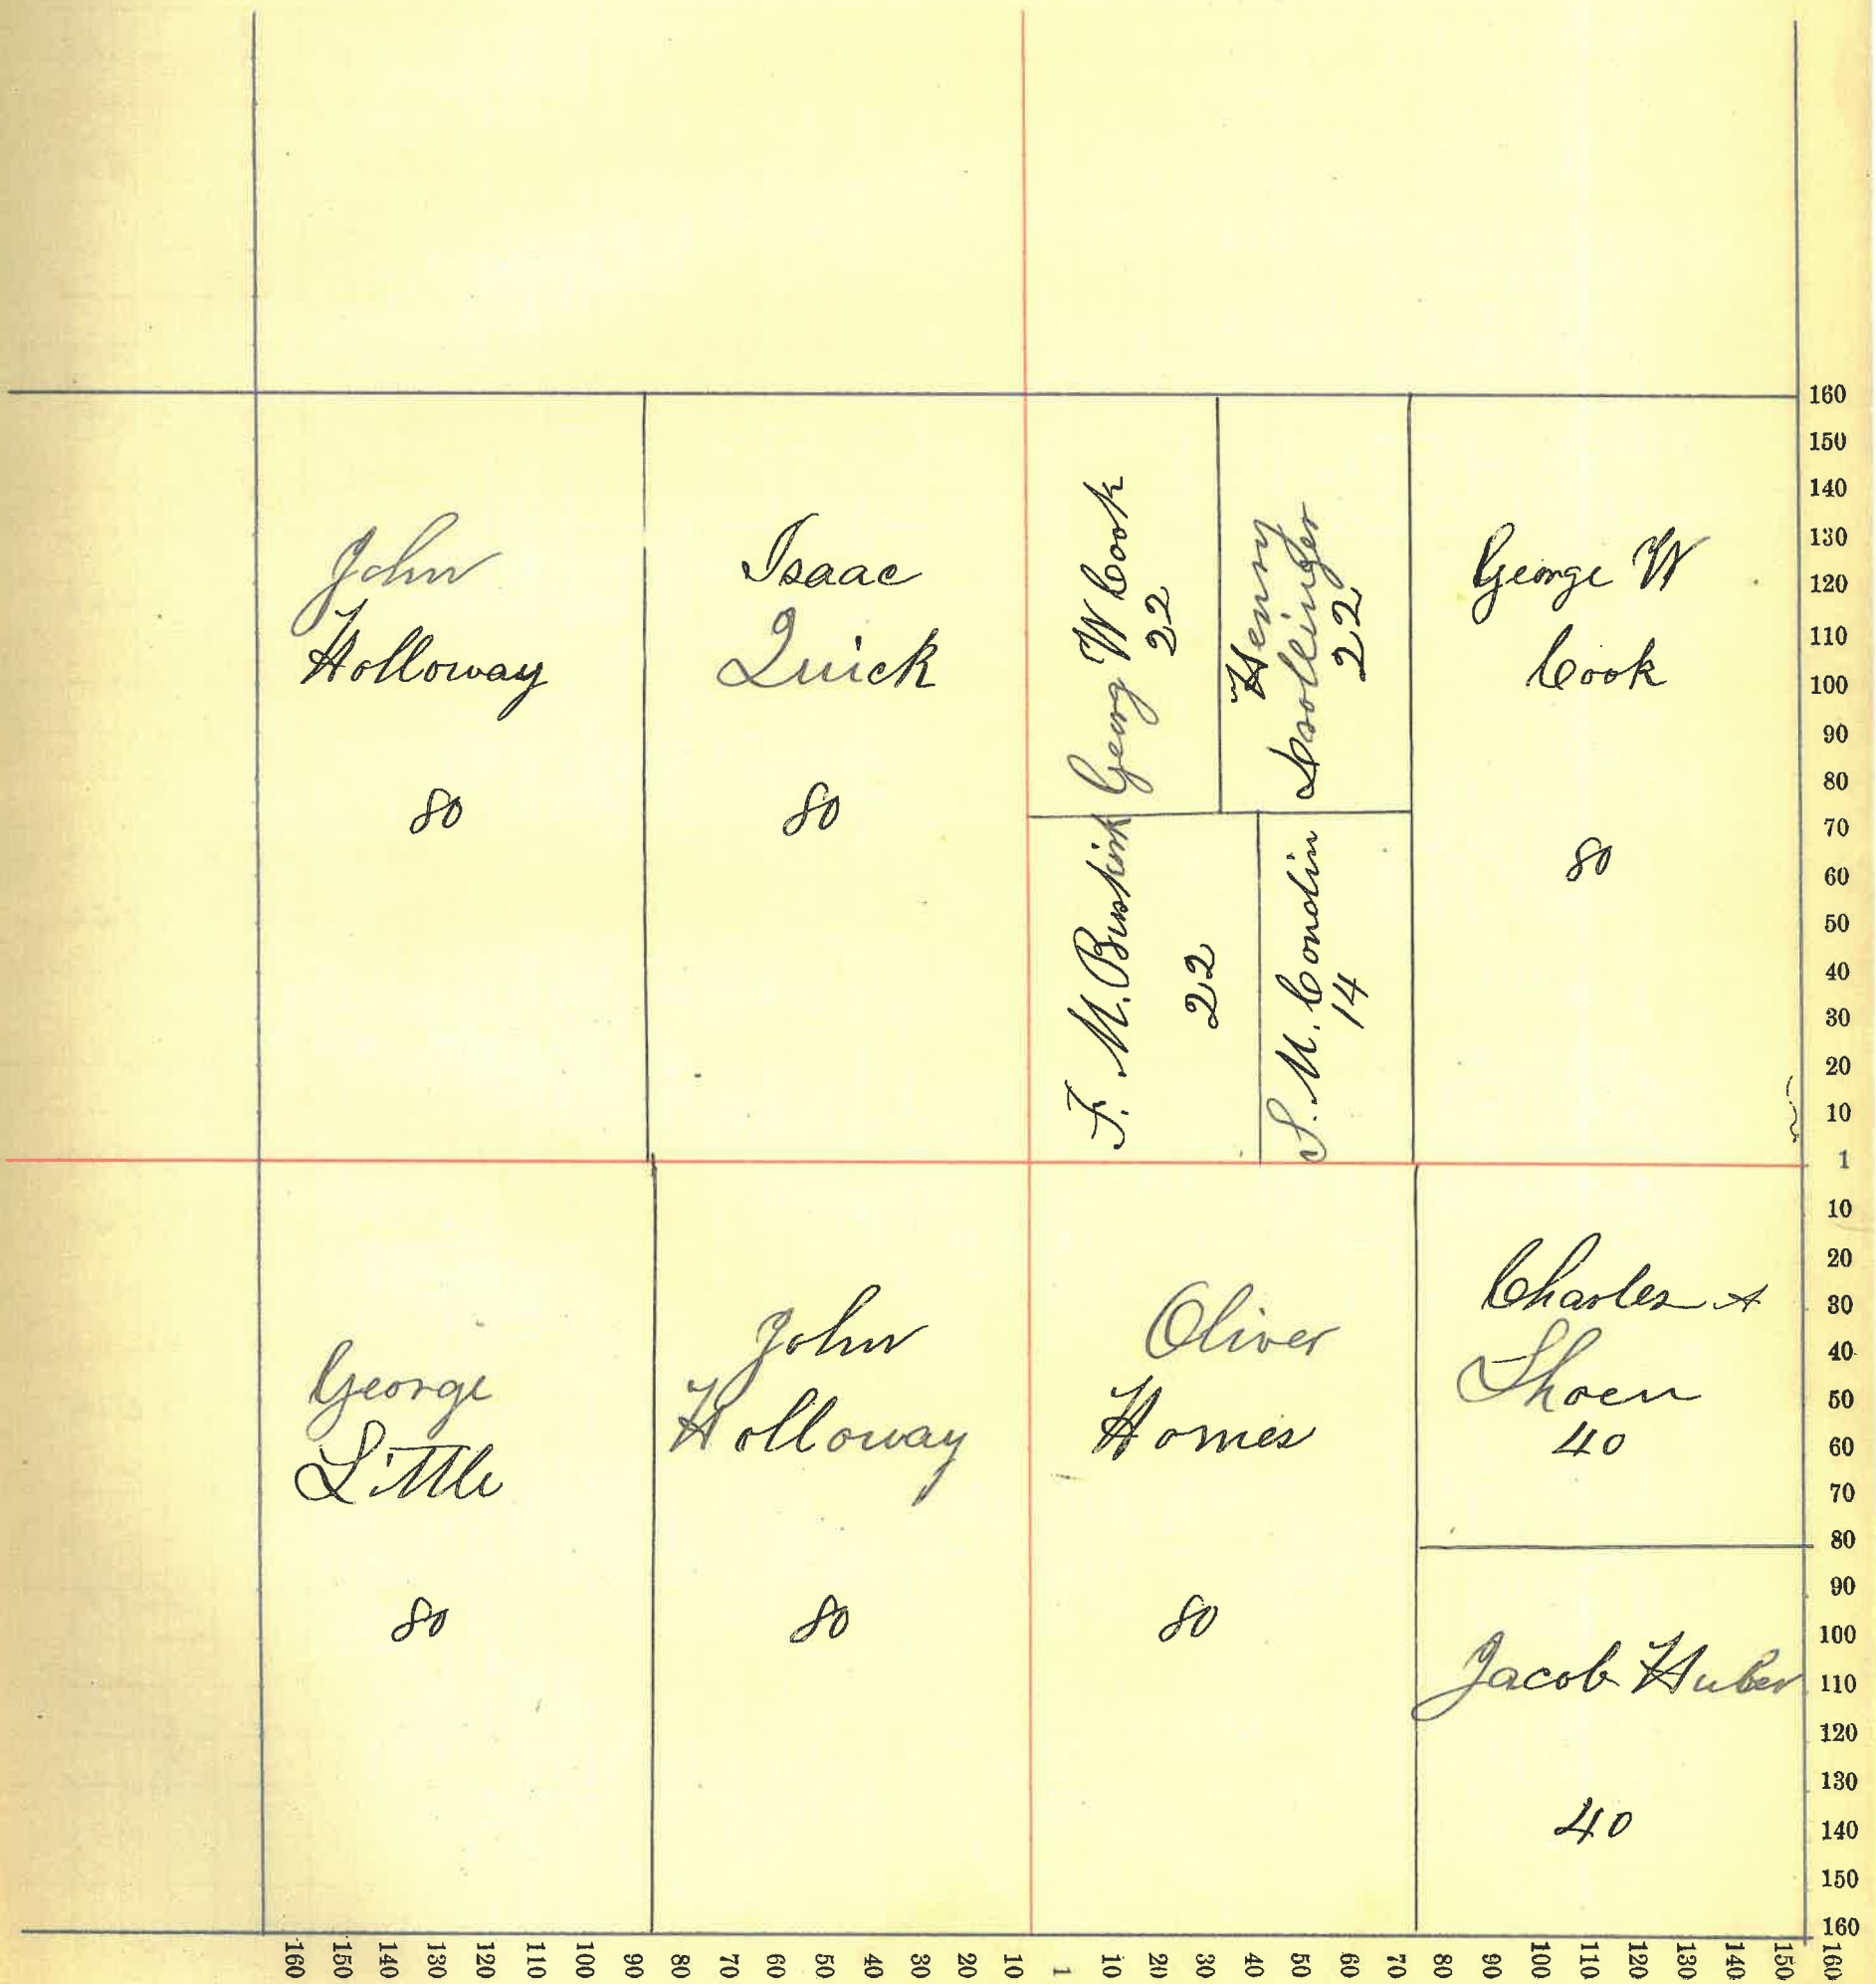 John
Holloway
80
Isaac
Quick
80
Georg W Cook
22
Henry
22
F. M. Buskirk
22
S. M. Condin
14
George W
Cook
80
George
Little
80
John
Holloway
80
Oliver
Homes
80
Charles A
Shoen
40
Jacob Huber
40
160
150
140
130
120
110
100
90
80
70
60
50
40
30
20
10
1
10
20
30
40
50
60
70
80
90
100
110
120
130
140
150
160
160 150 140 130 120 110 100 90 80 70 60 50 40 30 20 10 1 10 20 30 40 50 60 70 80 90 100 110 120 130 140 150 160